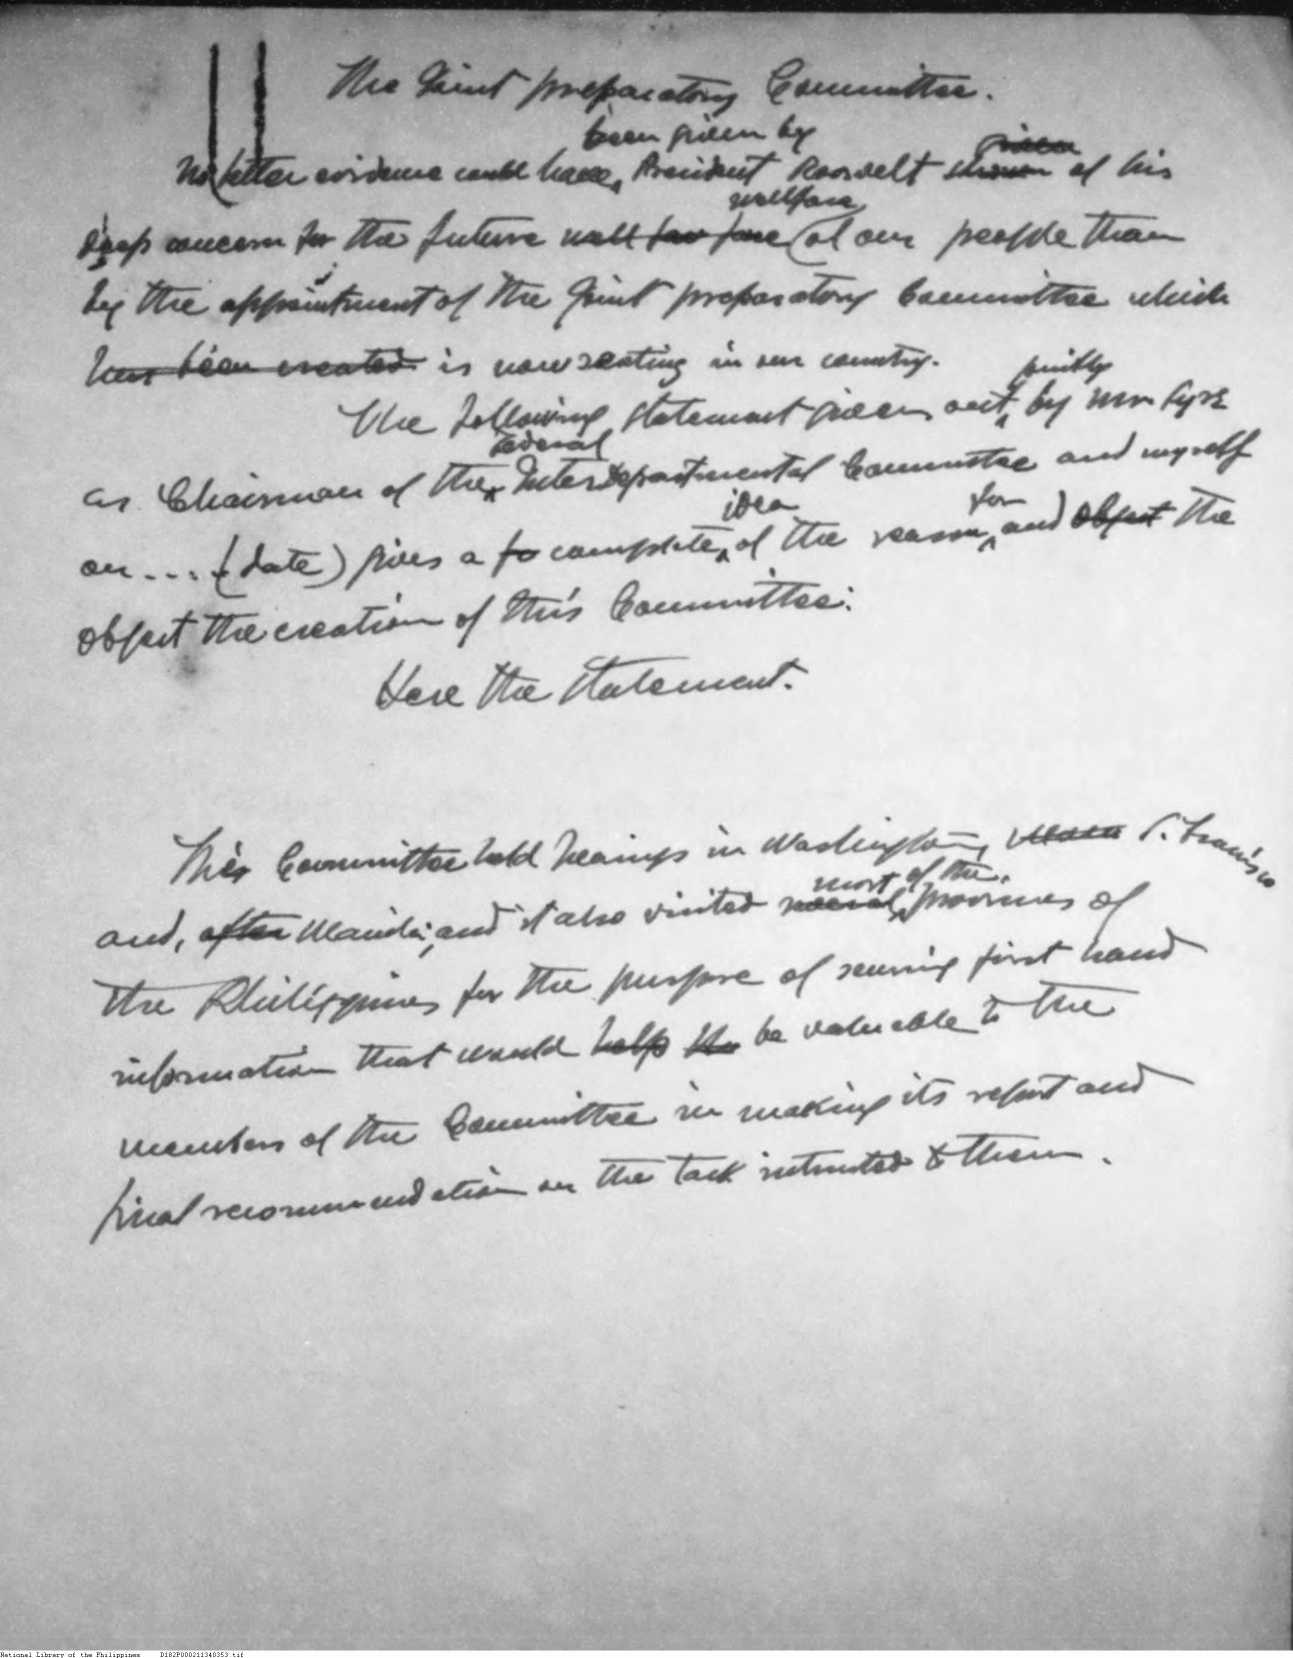 The Joint preparatory Committee.
been given by
given
No better evidence could have President Roosevelt shown of his
wellfare
deep concern for the future well far fare of our people than
by the appointment of the Joint preparatory Committee which
has been created is now seating in our country.
jointly
The following statement given out by Mr. Sayre
Federal
as Chairman of the InterDepartmental Committee and myself
idea for
on.... (date) gives a fo complete of the reason and object the
object the creation of this Committee:
Here the statement.
This Committee held hearings in Washington, S. Francisco
most of the
and, after Manila, and it also visited several provinces of
the Philippines for the purpose of securing first hand
information that would help the be valuable to the
members of the Committee in making its report and
final recommendation on the task intrusted to them.
National Library of the Philippines D182P000211340353.tif